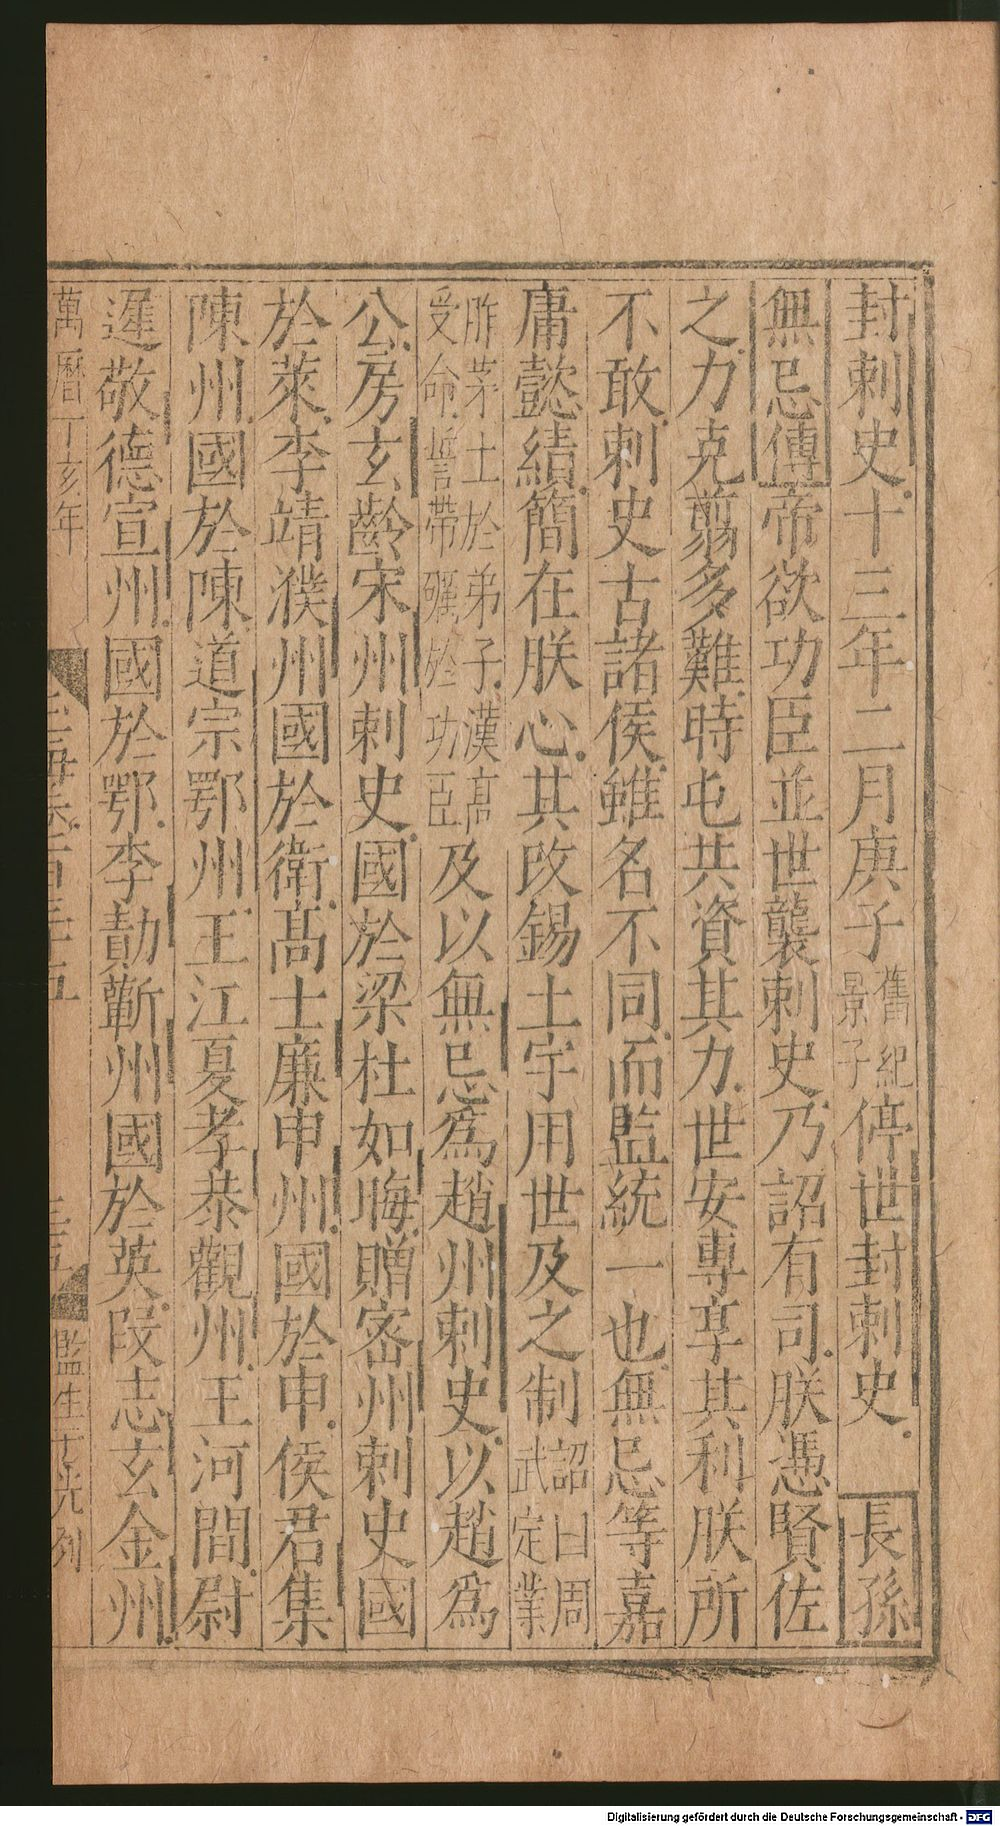 封刺史十三年二月庚子舊紀景子停世封刺史　長孫
無忌傳帝欲功臣並世襲刺史乃詔有司朕憑賢佐
之力克翦多難時屯共資其力世安專享其利朕所
不敢刺史古諸侯雖名不同而監統一也無忌等嘉
庸懿績簡在朕心其改錫土宇用世及之制詔曰周武定業
胙茅土於弟子漢高受命誓帶礪於功臣及以無忌爲趙州刺史以趙爲
公房玄齡宋州刺史國於梁杜如晦贈密州刺史國
於萊李靖濮州國於衛高士廉申州國於申侯君集
陳州國於陳道宗鄂州王江夏孝恭觀州王河間尉
遲敬德宣州國於鄂李勣蘄州國於英段志玄金州
萬曆丁亥年
百三十五
監生